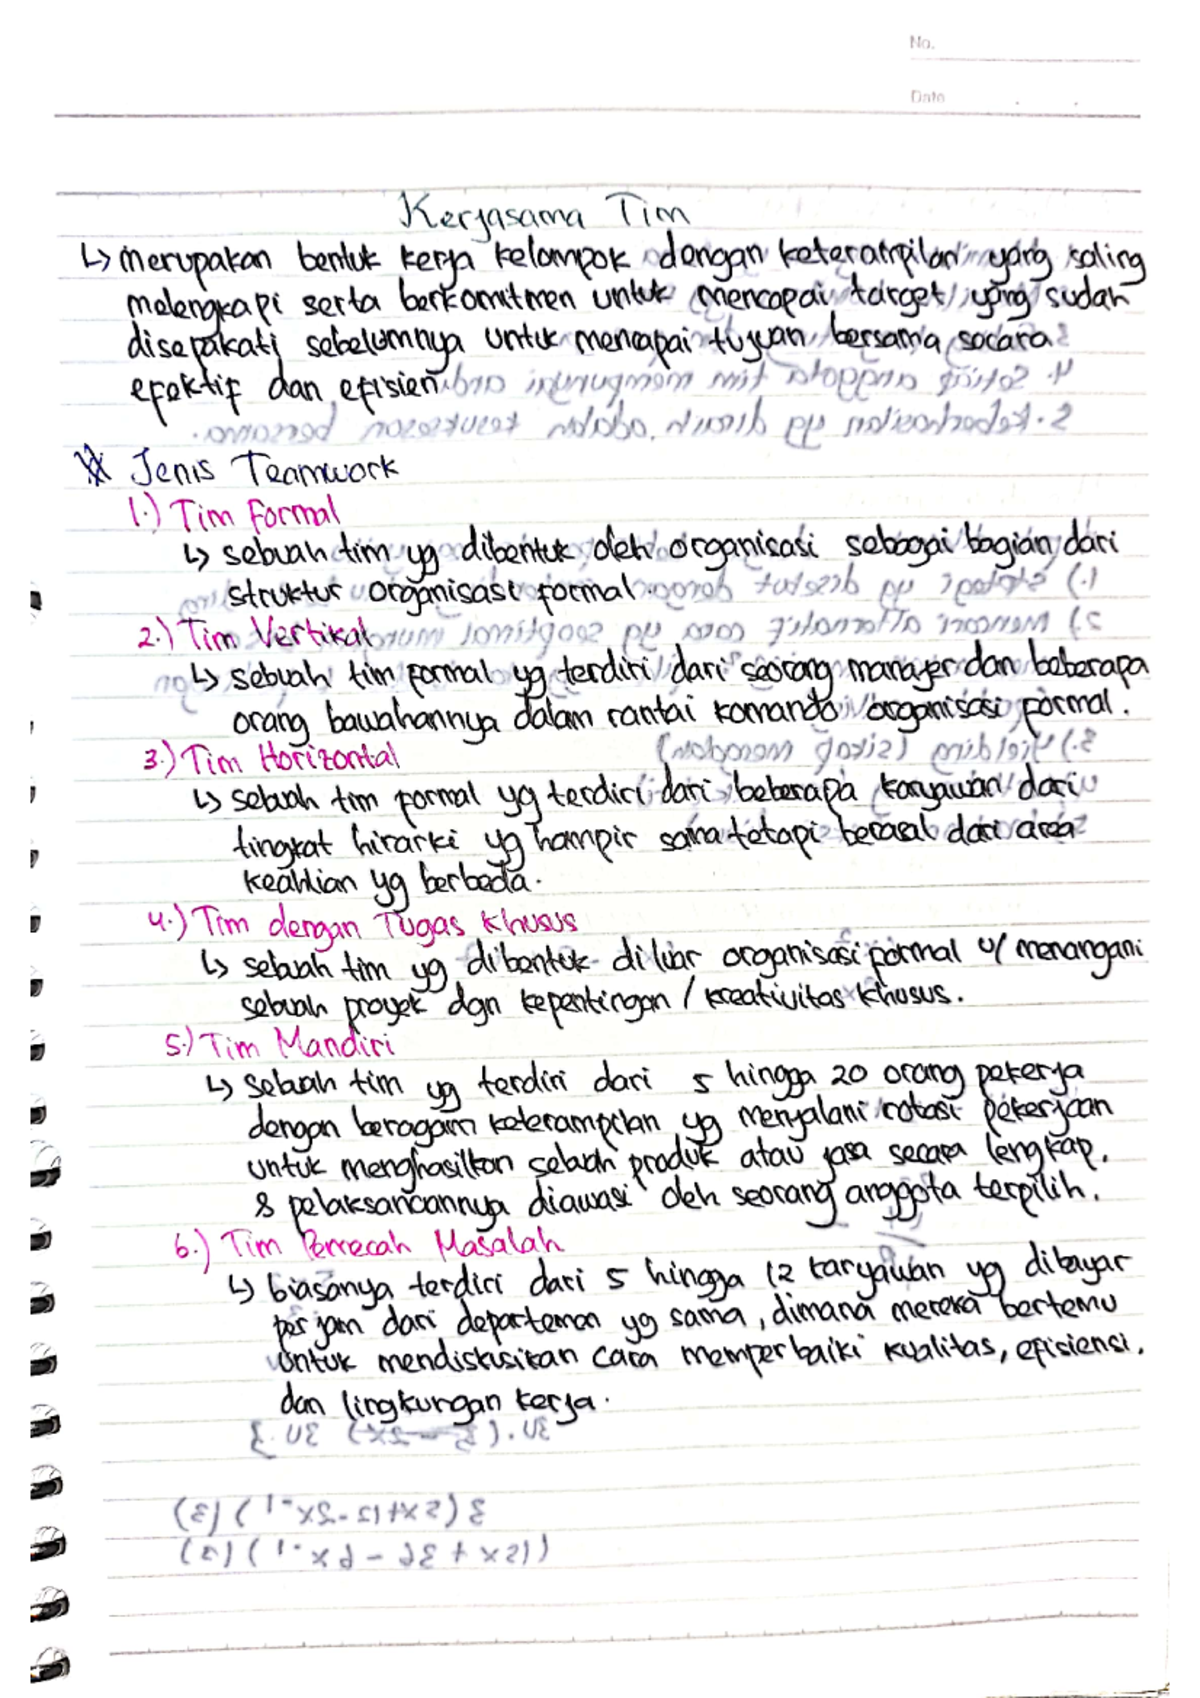 No.
Date
Kerjasama Tim
↳ merupakan bentuk kerja kelompok dengan keterampilan yang saling
melengkapi serta berkomitmen untuk mencapai target yang sudah
disepakati sebelumnya untuk mencapai tujuan bersama secara
efektif dan efisien
Jenis Teamwork
1.) Tim Formal
↳ sebuah tim yg dibentuk oleh organisasi sebagai bagian dari
struktur organisasi formal.
2.) Tim Vertikal
↳ sebuah tim formal yg terdiri dari seorang manajer dan beberapa
orang bawahannya dalam rantai komando organisasi formal.
3.) Tim Horizontal
↳ sebuah tim formal yg terdiri dari beberapa karyawan dari
tingkat hirarki yg hampir sama tetapi berasal dari area
keahlian yg berbeda.
4.) Tim dengan Tugas Khusus
↳ sebuah tim yg dibentuk di luar organisasi formal u/ menangani
sebuah proyek dgn kepentingan / kreativitas khusus.
5.) Tim Mandiri
↳ sebuah tim yg terdiri dari 5 hingga 20 orang pekerja
dengan beragam keterampilan yg menjalani rotasi pekerjaan
untuk menghasilkan sebuah produk atau jasa secara lengkap.
& pelaksanaannya diawasi oleh seorang anggota terpilih.
6.) Tim Pemecah Masalah
↳ biasanya terdiri dari 5 hingga 12 karyawan yg dibayar
per jam dari departemen yg sama, dimana mereka bertemu
untuk mendiskusikan cara memperbaiki kualitas, efisiensi,
dan lingkungan kerja.